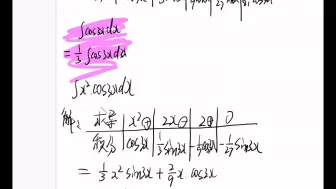 ∫cos3xdx
= 1/3 ∫cos3xdx
∫x² cos3xdx
解: 求导 | x² ⊕ | 2x ⊖ | 2 ⊕ | 0
积分 | cos3x | 1/3 sin3x | -1/9 cos3x | -1/27 sin3x
= 1/3 x² sin3x + 2/9 x · cos3x